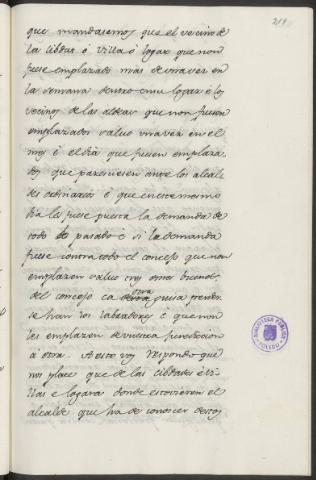 219
que mandasemos que el vecino de
la cibdat ó villa ó logar que non
fuese emplazado mas de una vez en
la semana dentro en su logar é los
vecinos de las aldeas que non fuesen
emplazados salvo una vez en el
mes é el dia que fuesen emplaza-
dos que paresciesen ante los alcal-
des ordinarios é que en ese mesmo
dia les fuese puesta la demanda de
todo lo pasado é si la demanda
fuese contra todo el concejo que non
emplazen salvo omes buenos
del concejo ca de otra guisa perder
se han los labradores é que non
les emplazen de vuestra jurediccion
á otra. A esto vos respondo que
nos place que de las cibdades é vi-
llas é logares donde estovieren el
alcalde que ha de conoscer destos
BIBLIOTECA PUBLICA
TOLEDO